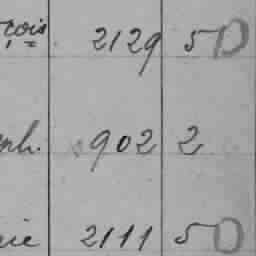 çois 2129 5 D
ph. 902 2
rie 2111 5 D